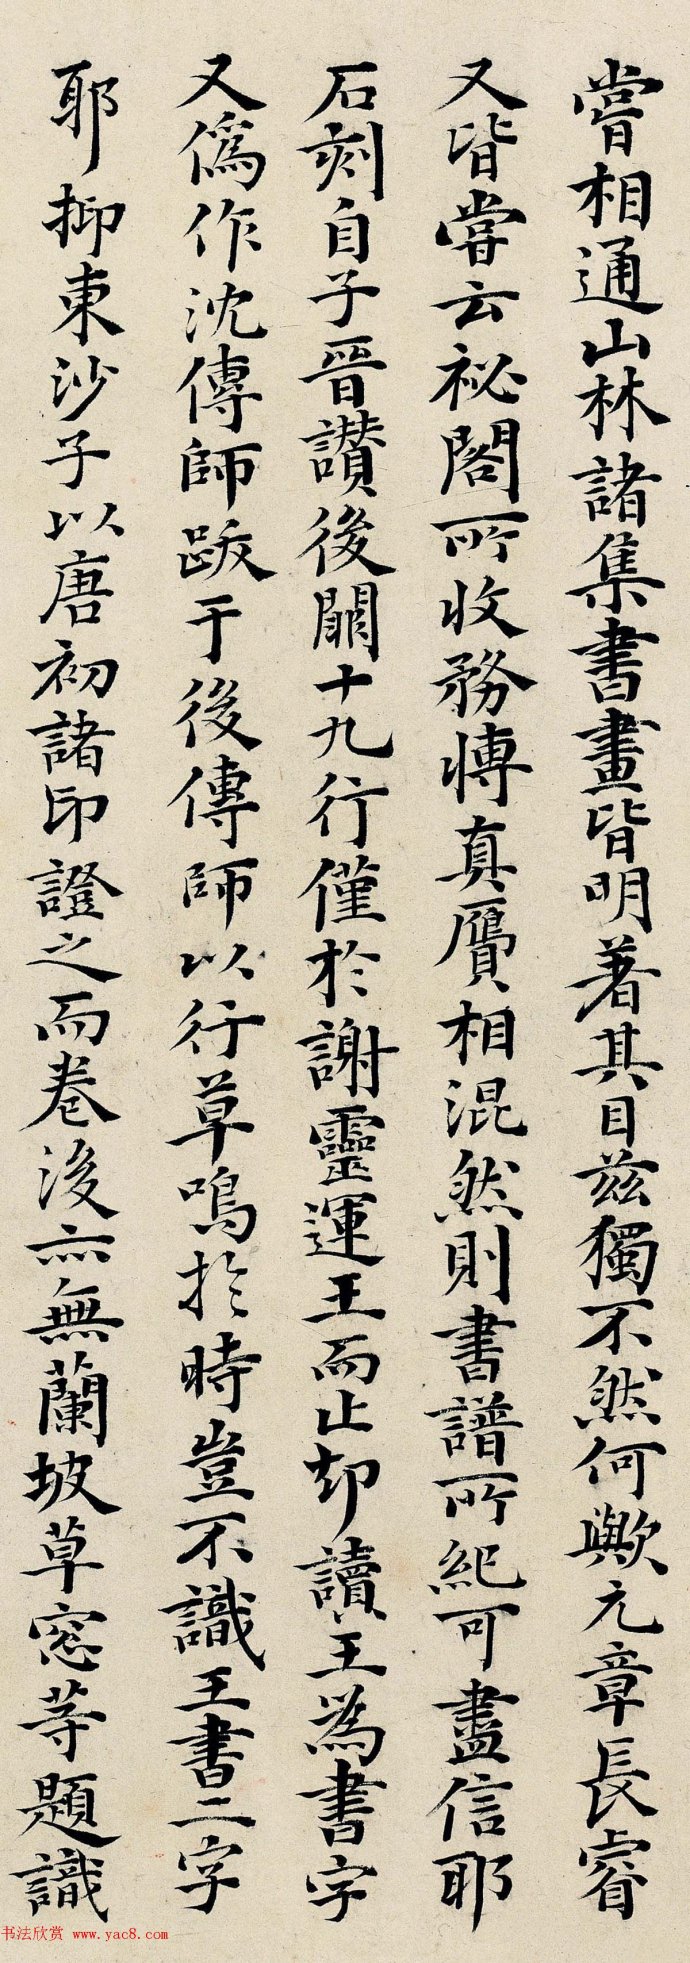 嘗相通山林諸集書畫皆明著其目茲獨不然何歟元章長睿
又皆嘗云祕閣所收務博真贋相混然則書譜所紀可盡信耶
石刻自子晉讃後闕十九行僅於謝靈運王而止却讀王為書字
又偽作沈傳師跋于後傳師以行草鳴於時豈不識王書二字
耶抑東沙子以唐初諸印證之而卷後亦無蘭坡草窓等題識
书法欣赏 www.yac8.com